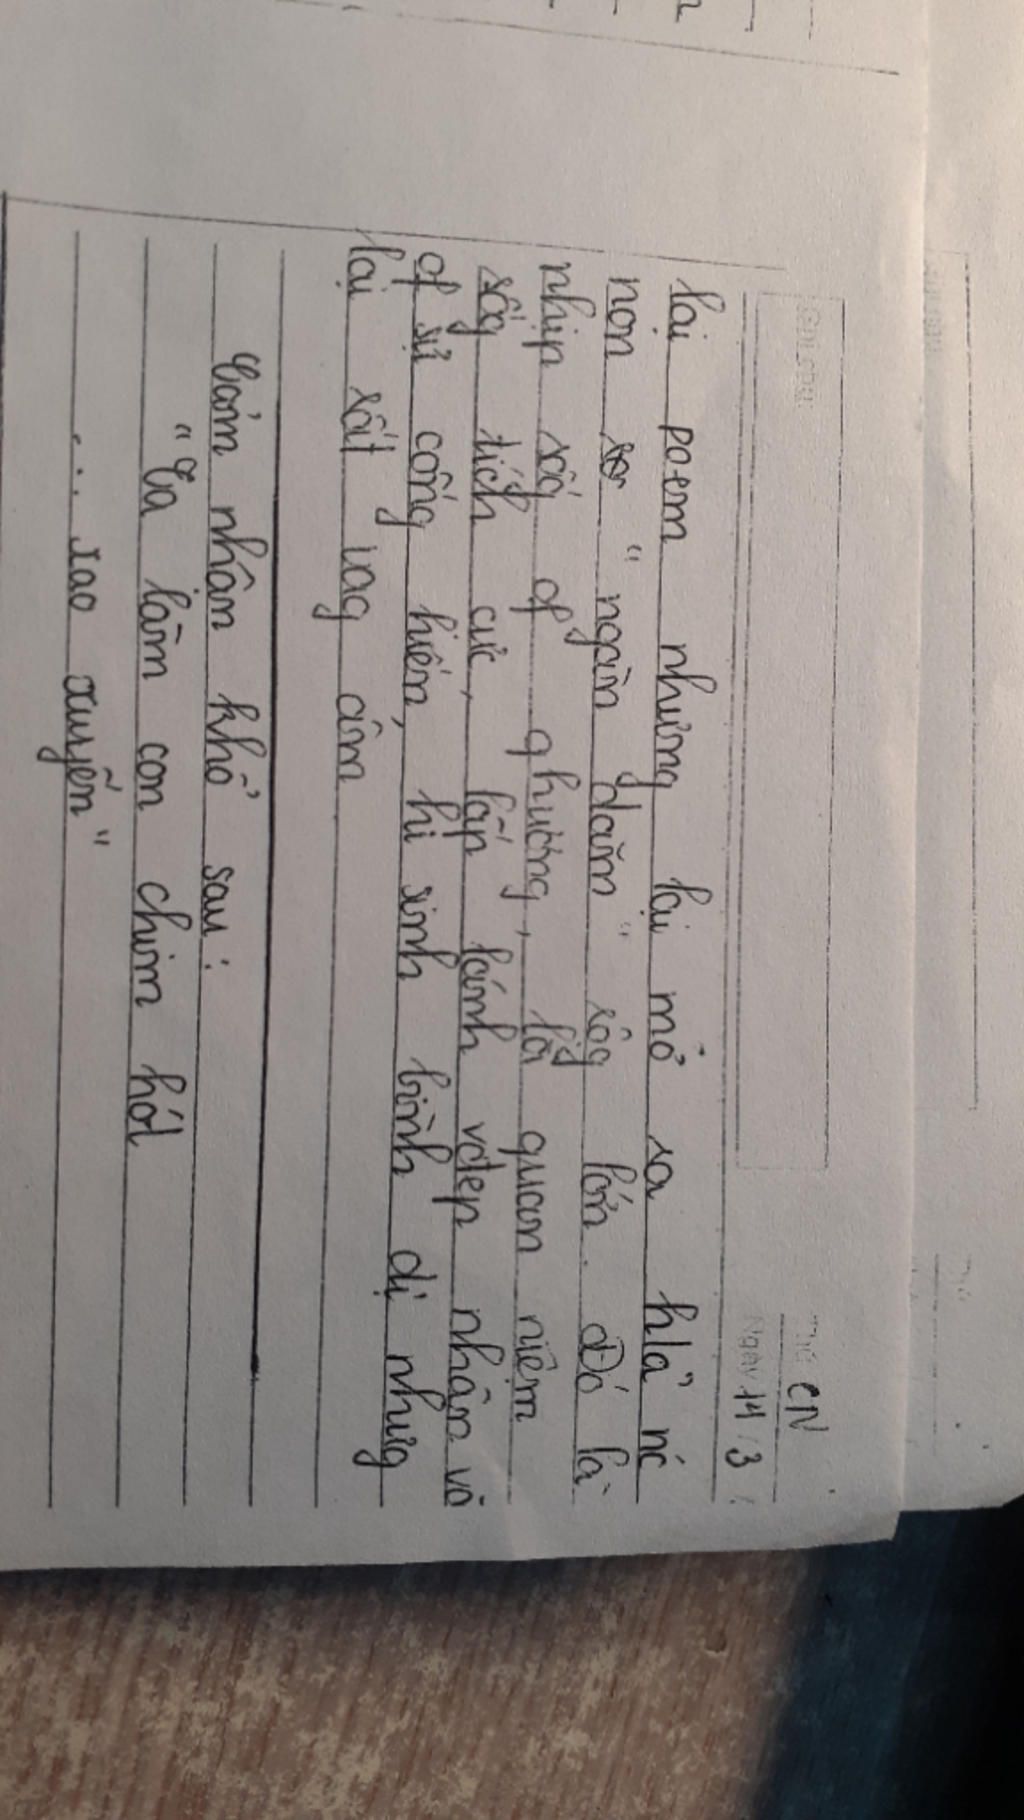 Thứ CN
Ngày 14 / 3
lại poem nhưng lại mở ra hlả nc
non "ngàn dặm" rộg lớn. Đó là
nhịp sốg of qhương, là quan niệm
sốg tích cực, lấp lánh vđẹp nhân vă
of sự cống hiến, hi sinh bình dị nhưg
lại rất vag âm
Cảm nhân khổ sau:
"Ta làm con chim hót
... xao xuyến"